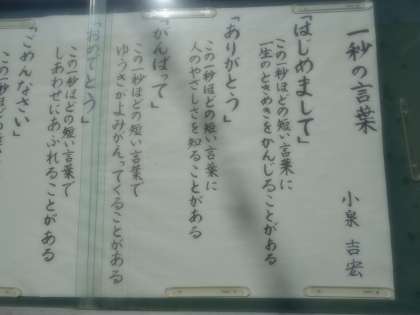 一秒の言葉
小泉吉宏
「はじめまして」
この一秒ほどの短い言葉に
一生のときめきをかんじることがある
「ありがとう」
この一秒ほどの短い言葉に
人のやさしさを知ることがある
「がんばって」
この一秒ほどの短い言葉で
ゆうきがよみがえってくることがある
「おめでとう」
この一秒ほどの短い言葉で
しあわせにあふれることがある
「ごめんなさい」
この一秒ほどの